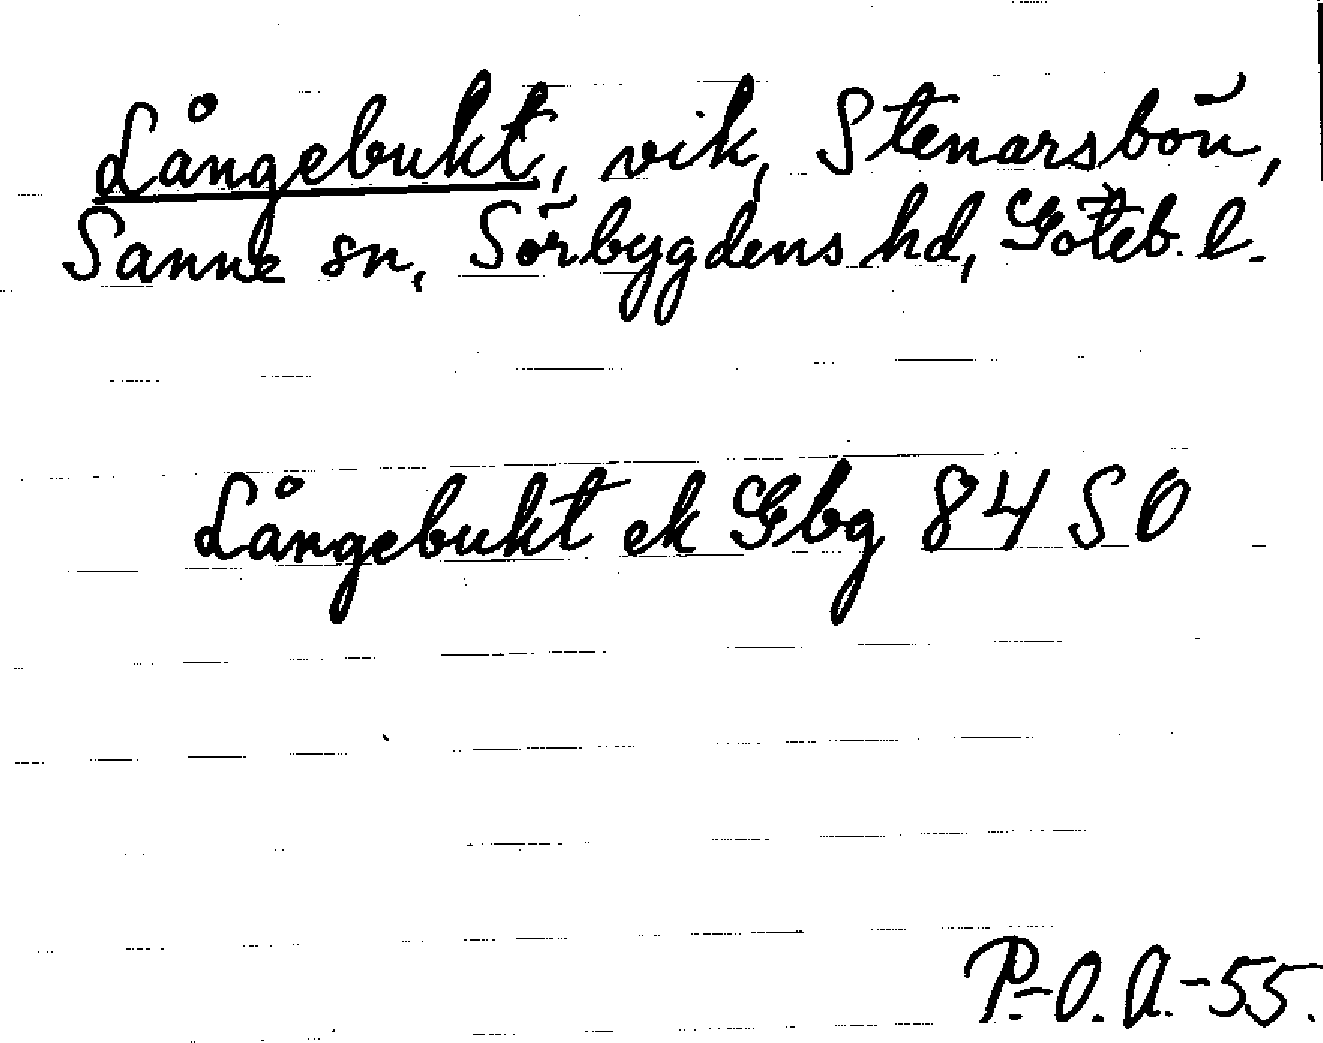 Långebukt, vik, Stenarsbön,
Sanne sn, Sörbygdens hd, Göteb. l.
Långebukt ek Gbg 84 SO
P.-O. A.-55.